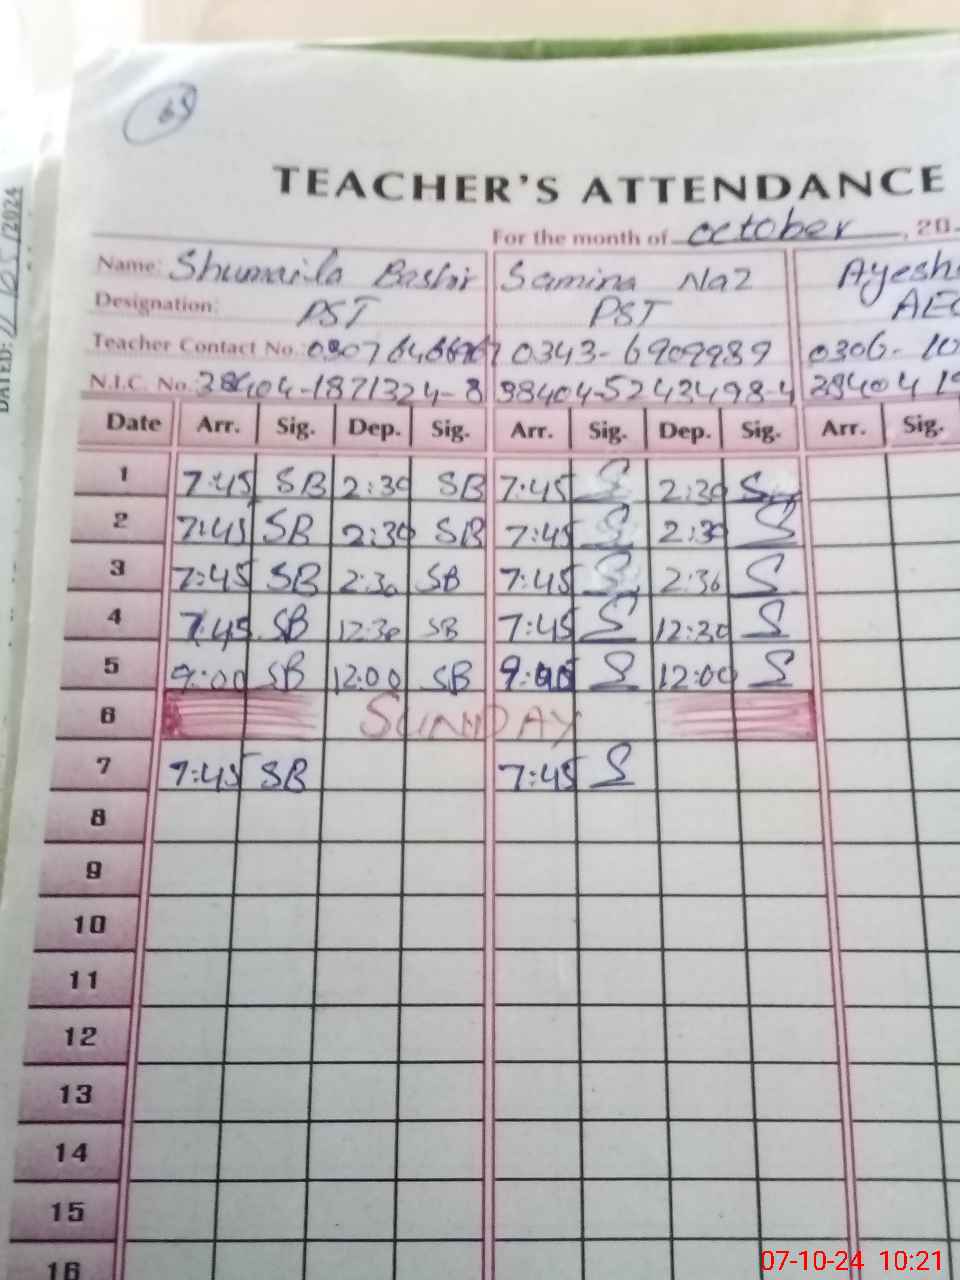 65
DATED: 2024
TEACHER'S ATTENDANCE
For the month of october, 20
Name: Shumaila Bashir Samina Naz Ayesh
Designation: PST PST AEO
Teacher Contact No.: 0343-6909989 0306-10
N.I.C. No. 38404-1871324-8 38404-5243498-4 38404 19
Date Arr. Sig. Dep. Sig. Arr. Sig. Dep. Sig. Arr. Sig.
1 7:45 SB 2:30 SB 7:45 S 2:30 S
2 7:45 SB 2:30 SB 7:45 S 2:30 S
3 7:45 SB 2:30 SB 7:45 S 2:30 S
4 7:45 SB 12:30 SB 7:45 S 12:30 S
5 9:00 SB 12:00 SB 9:00 S 12:00 S
6 SUNDAY
7 7:45 SB 7:45 S
8
9
10
11
12
13
14
15
16
07-10-24 10:21